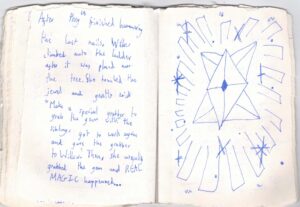 After Peg finished hammering
the last nails Willow
climbed onto the ladder
after it was placed near
the tree. She touched the
jewel and gently said
"Make a special grabber to
grab the gem
siblings got to work again
and gave the grabber
to Willow. Then she
grabbed the gem and REAL
MAGIC happened...